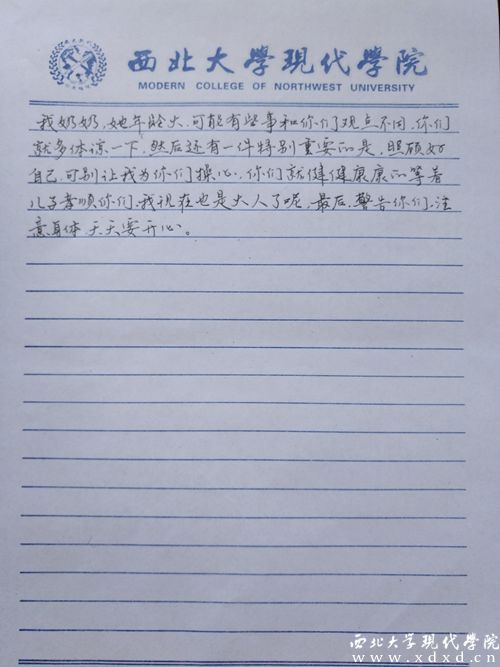 西北大學現代學院
MODERN COLLEGE OF NORTHWEST UNIVERSITY
我奶奶,她年龄大,可能有些事和你们观点不同,你们
就多体凉一下,然后还有一件特别重要的是,照顾好
自己,可别让我为你们操心,你们就健健康康的等着
儿子孝顺你们,我现在也是大人了呢,最后,警告你们,注
意身体,天天要开心。
西北大学现代学院
www.xdxd.cn